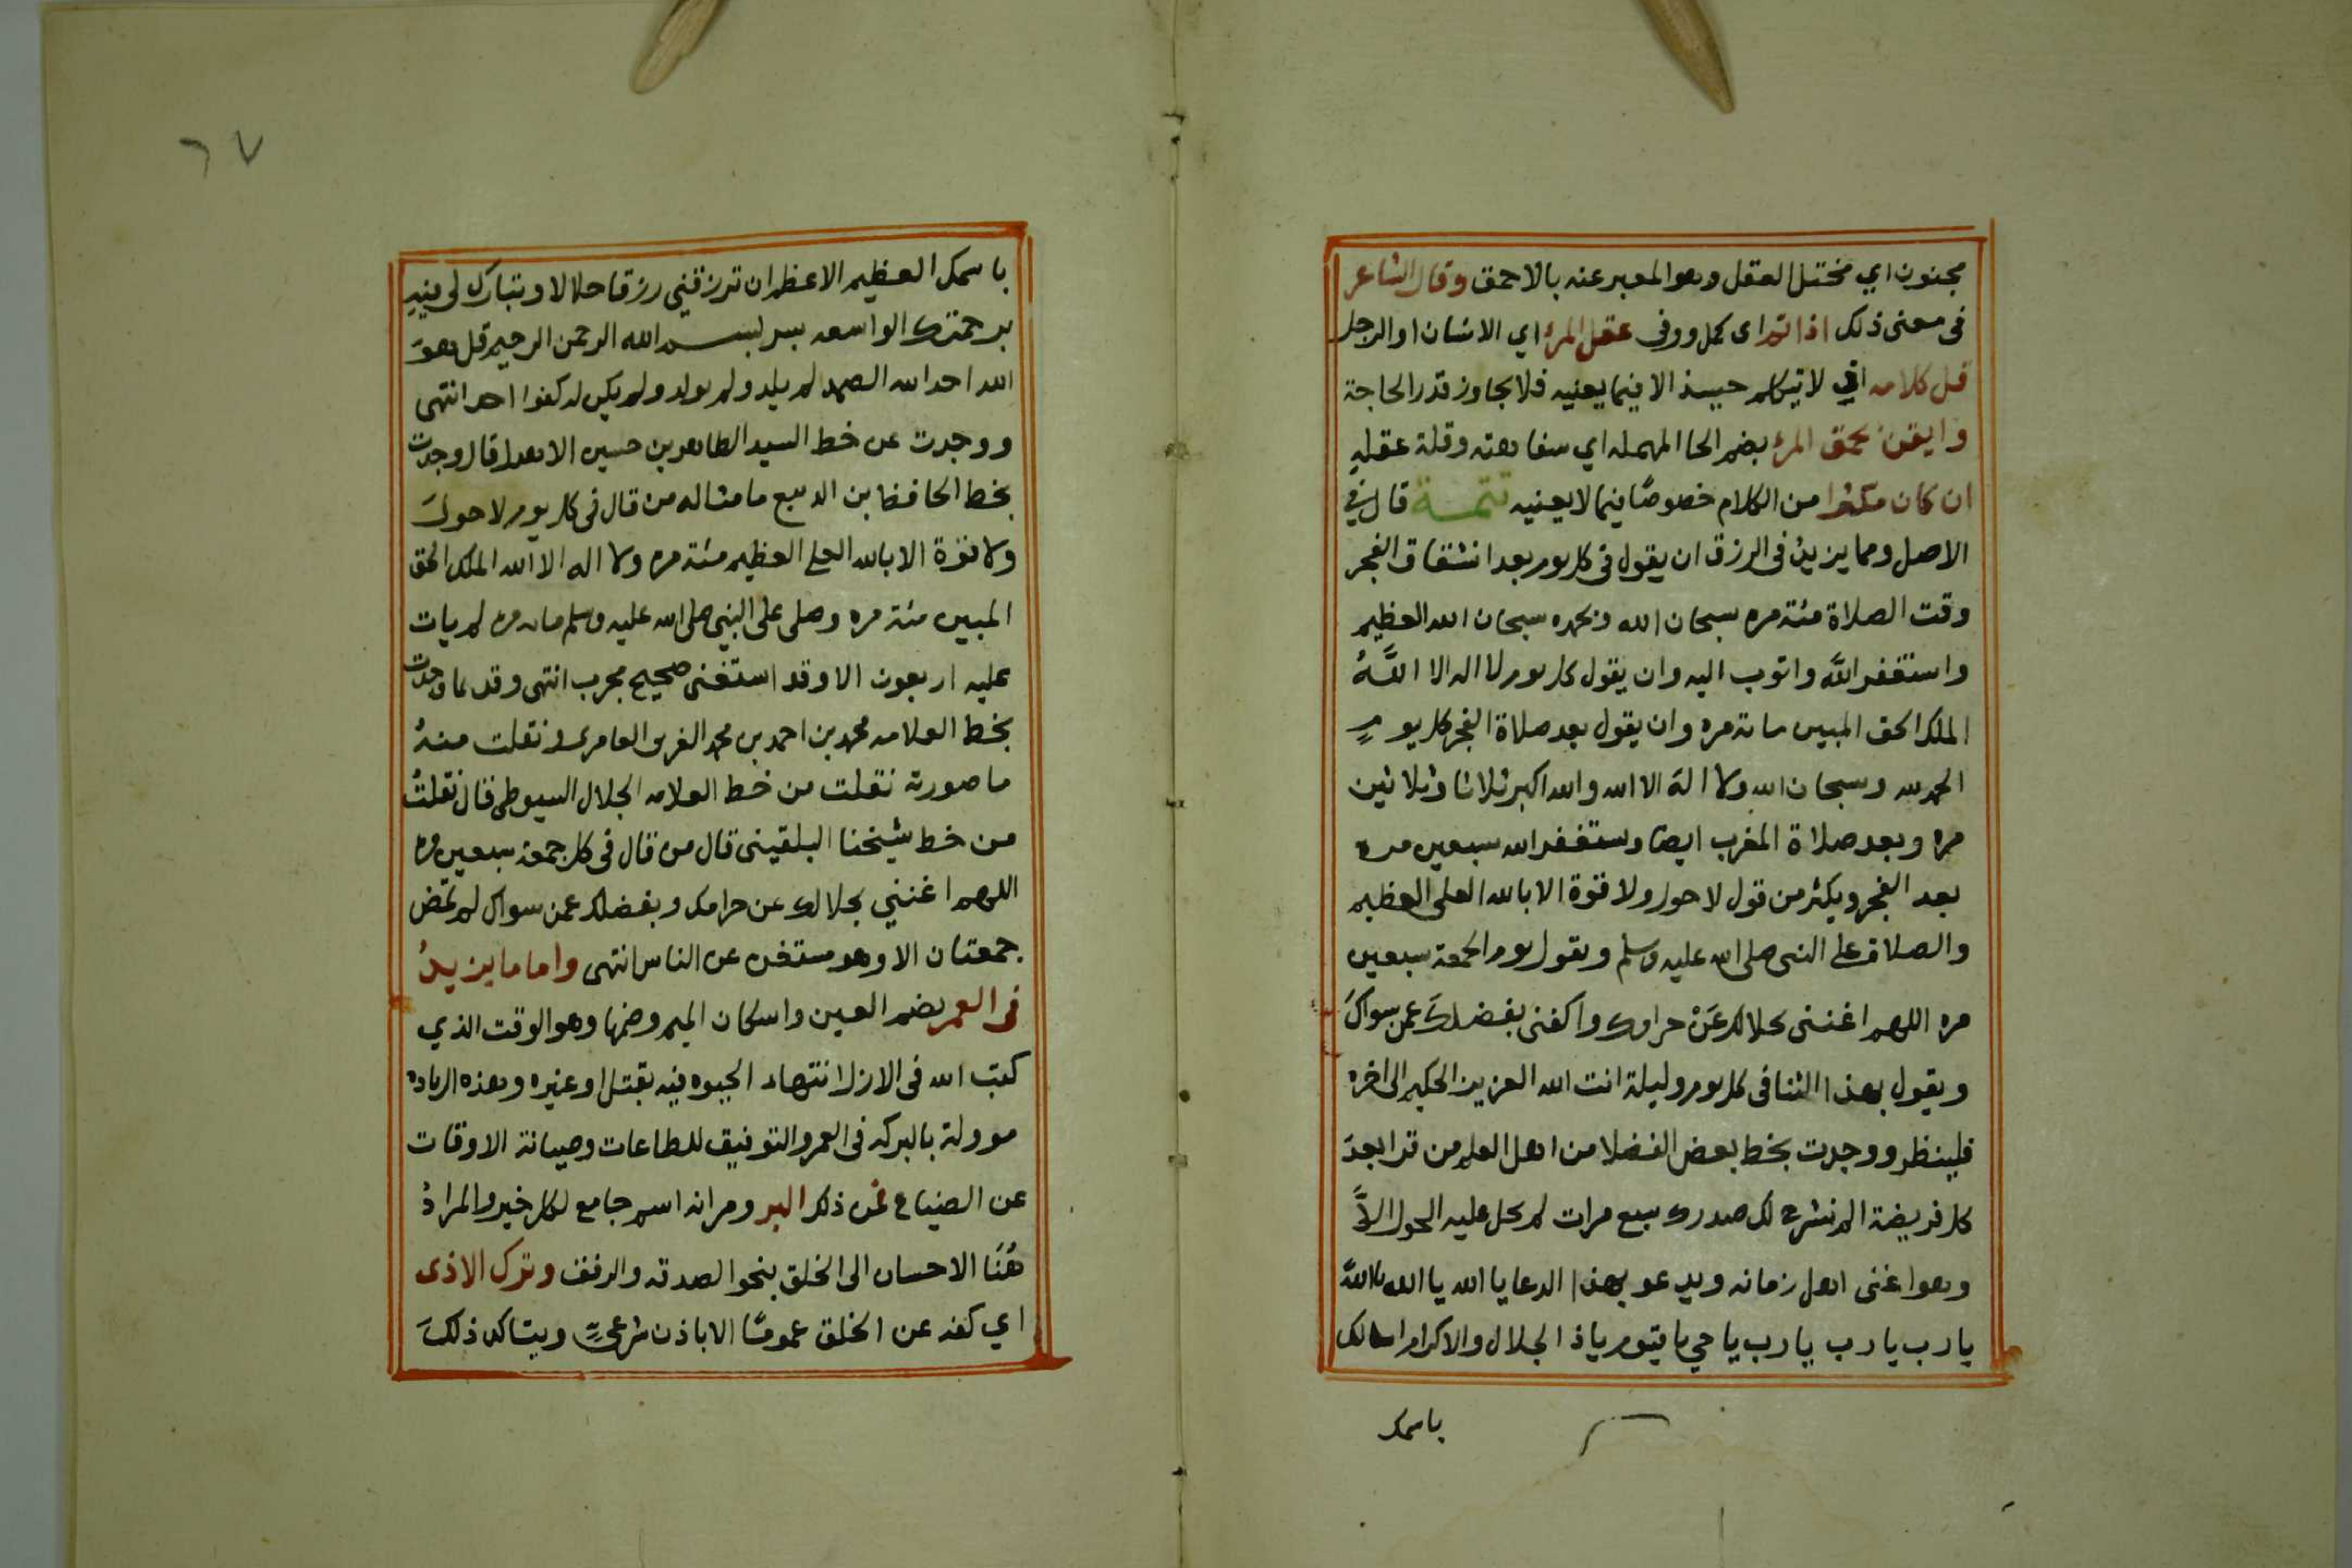 مجنون اي مختل العقل وهو المعبر عنه بالاحمق وقال الشاعر
في معنى ذلك اذا تم اى كمل ووفى عقل المرء اي الانسان او الرجل
قل كلامه اي لا يتكلم حينئذ الا فيما يعنيه فلا يجاوز قدر الحاجة
وايقن بحمق المرء بضم الحا المهمله اي سفاهته وقلة عقله
ان كان مكثرا من الكلام خصوصًا فيما لا يعنيه تتمة قال في
الاصل ومما يزيد في الرزق ان يقول في كل يوم بعد انشقاق الفجر
وقت الصلاة مئة مره سبحان الله وبحمده سبحان الله العظيم
واستغفر الله واتوب اليه وان يقول كل يوم لا اله الا اللهُ
الملك الحق المبين مائة مره وان يقول بعد صلاة الفجر كل يومٍ
الحمد لله وسبحان الله ولا اله الا الله والله اكبر ثلاثا وثلاثين
مره وبعد صلاة المغرب ايضا ويستغفر الله سبعين مره
بعد الفجر ويكثر من قول لا حول ولا قوة الا بالله العلي العظيم
والصلاة على النبي صلى الله عليه وسلم ويقول يوم الجمعة سبعين
مره اللهم اغنني بحلالك عَنْ حرامك واكفني بفضلك عمن سواكَ
ويقول بهذا الثنا في كل يوم وليلة انت الله العزيز الحكيم الى اخره
فلينظر ووجدت بخط بعض الفضلا من اهل العلم من قرا بعدَ
كل فريضة الم نشرح لك صدرك سبع مرات لم يحل عليه الحول الاَّ
وهو اغنى اهل زمانه ويدعو بهذا الدعا يا الله يا الله يا اللهُ
يا رب يا رب يا رب يا حي يا قيوم يا ذا الجلال والاكرام اسالك
باسمك
٦٧
باسمك العظيم الاعظم ان ترزقني رزقا حلالا وتبارك لي فيهِ
برحمتك الواسعه بسر بسم الله الرحمن الرحيم قل هوَ
الله احد الله الصمد لم يلد ولم يولد ولم يكن له كفوا احد انتهى
ووجدت عن خط السيد الطاهر بن حسين الاهدل قال وجدت
بخط الحافظ ابن الديبع ما مثاله من قال في كل يوم لا حولَ
ولا قوة الا بالله العلي العظيم مئة مره ولا اله الا الله الملك الحق
المبين مئة مره وصلى على النبي صلى الله عليه وسلم مائة مره لم يات
عليه اربعون الا وقد استغنى صحيح مجرب انتهى وقد وجدت
بخط العلامه محمد بن احمد بن محمد الغزي العامري ونقلت منهُ
ما صورته نقلت من خط العلامه الجلال السيوطي قال نقلتُ
من خط شيخنا البلقيني قال من قال في كل جمعة سبعين مره
اللهم اغنني بحلالك عن حرامك وبفضلك عمن سواك لم تمض
جمعتان الا وهو مستغن عن الناس انتهى واما ما يزيدُ
في العمر بضم العين واسكان الميم وضمها وهو الوقت الذي
كتب الله في الازل انتهاء الحيوه فيه بقتل او غيره وهذه الزياده
موولة بالبركه في العمر والتوفيق للطاعات وصيانة الاوقات
عن الضياع فمن ذلك البر ومر انه اسم جامع لكل خير والمرادُ
هُنَا الاحسان الى الخلق بنحو الصدقه والرفق وترك الاذى
اي كفه عن الخلق عمومًا الا باذن شرعيٍّ ويتاكد ذلكَ